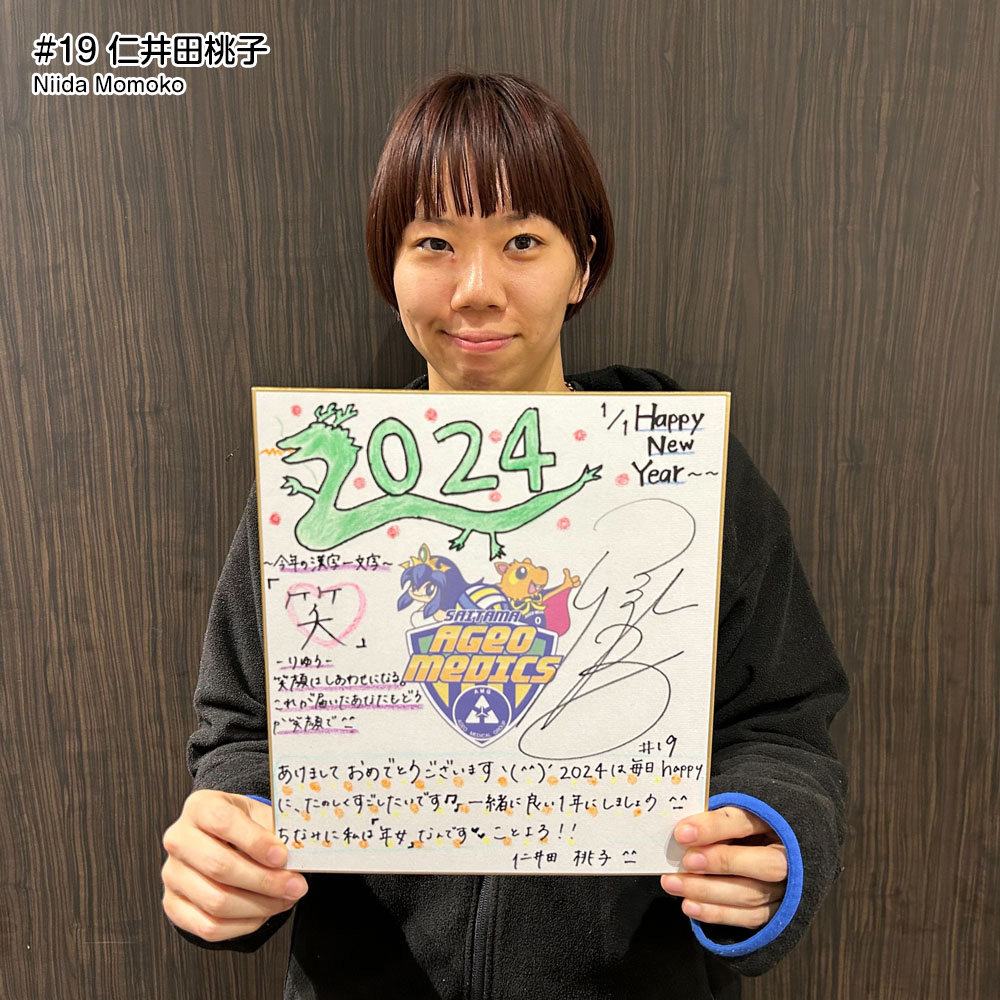 #19 仁井田桃子
Niida Momoko
2024
1/1 Happy
New
Year~~
~今年の漢字一文字~
「笑」
-りゆう-
笑顔はしあわせになる。
これが届いたあなたもどう
か笑顔で^^
SAITAMA
AGEO
MEDICS
AMG
AGEO MEDICAL GROUP
#19
あけましておめでとうございますヽ(^^)ﾉ 2024は毎日happy
に、たのしくすごしたいです♫」一緒に良い1年にしましょう ^^
ちなみに私は「年女」なんです♥♥ ことよろ!!
仁井田 桃子 ^^